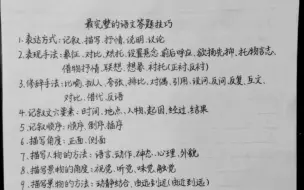 最完整的语文答题技巧
1.表达方式:记叙、描写、抒情、说明、议论
2.表现手法:象征、对比、烘托、设置悬念、前后呼应、欲扬先抑、托物言志、
借物抒情、联想、想象、衬托(正衬、反衬)
3.修辞手法:比喻、拟人、夸张、排比、对偶、引用、设问、反问、反复、互文、
对比、借代、反语
4.记叙文六要素:时间、地点、人物、起因、经过、结果
5.记叙顺序:顺序、倒序、插序
6.描写角度:正面、侧面
7.描写人物的方法:语言、动作、神态、心理、外貌
8.描写景物的角度:视觉、听觉、味觉、触觉
9.描写景物的方法:动静结合、由远到近(由近到远)